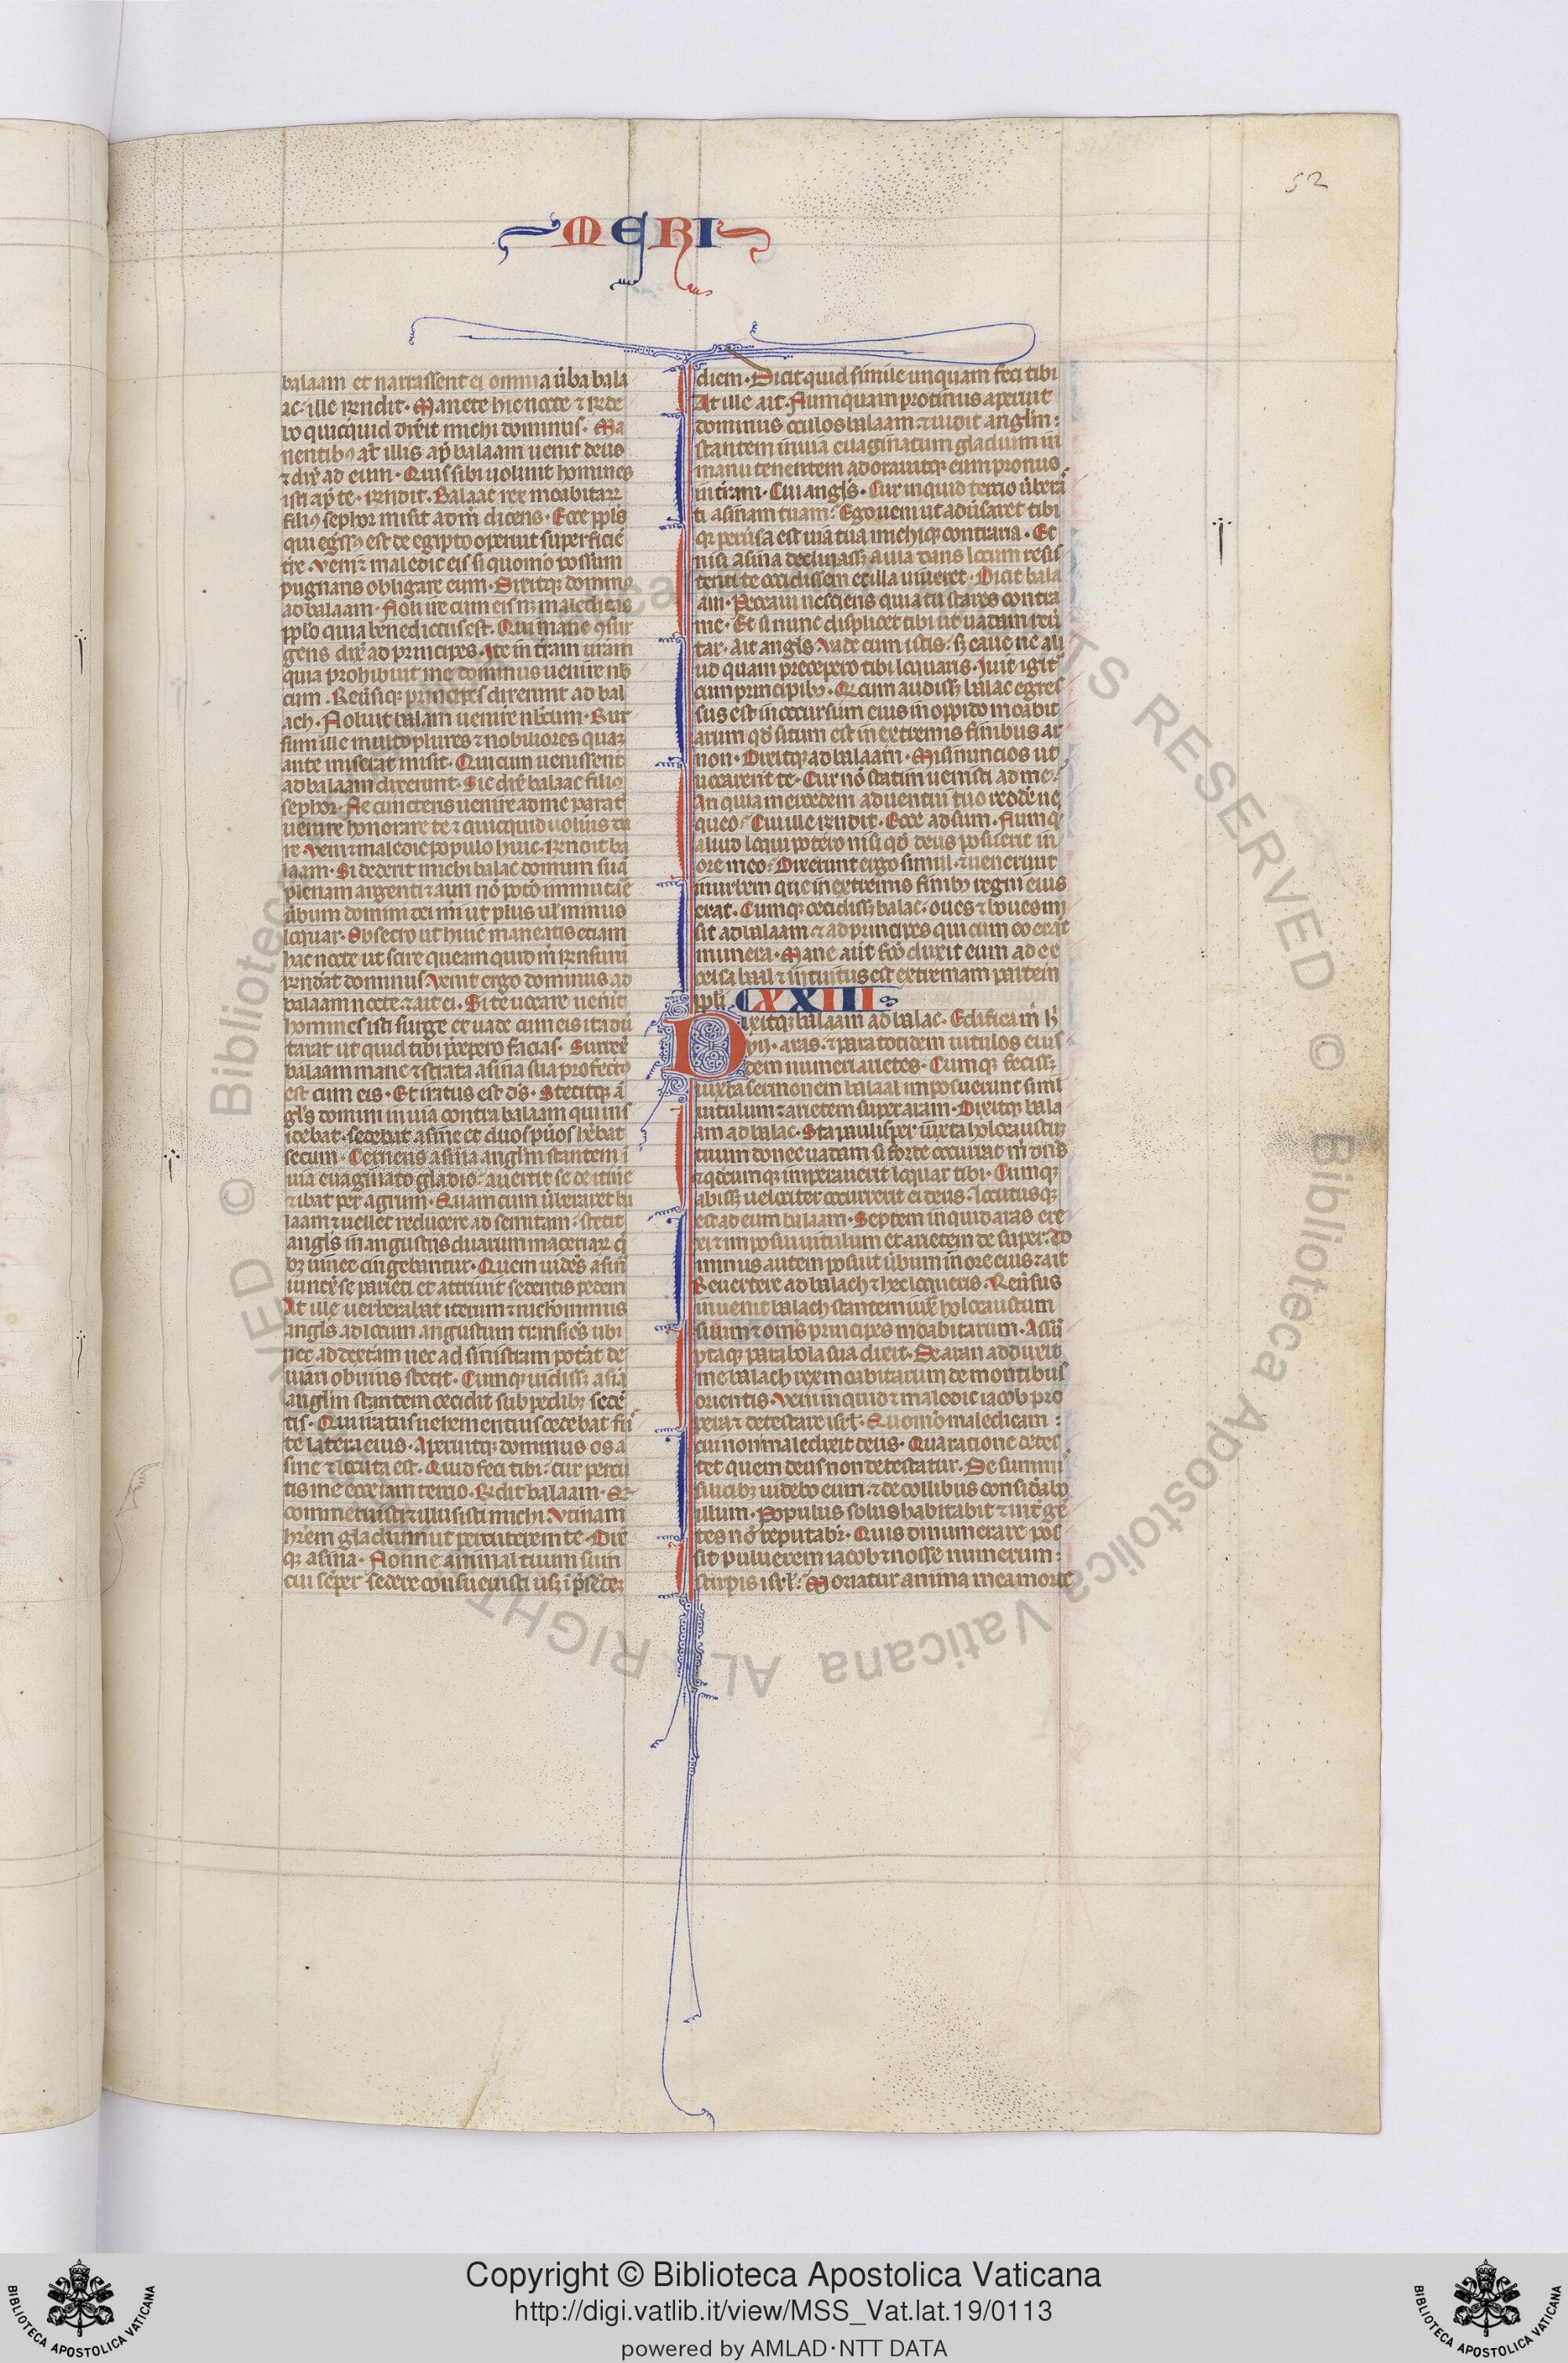 52
MERI
balaam et narrassent ei omnia u̅ba bala
ac. ille rn̅dit. Manete hic nocte ⁊ rn̅de
bo quicquid dixerit michi dominus. Ma
nentibꝰ at̅ illis ap̅ balaam uenit deus
⁊ dix̅ ad eum. Quis sibi uolunt homines
isti ap̅ te. rn̅dit. Balaac rex moabitaꝝ
filiꝰ sephor misit ad m̅ dicens. Ecce ppl̅s
qui egressꝰ est de egipto operuit superficie̅
tr̅e. Veni ⁊ maledic eis si quomo possum
pugnans obligare eum. Dixitqꝫ dominꝰ
ad balaam. Noli ire cum eis nꝫ maledicas
pplo̅ quia benedictus est. Qui mane ꝯsur
gens dix̅ ad principes. Ite in tr̅am ur̅am
quia prohibuit me dominus uenire uob̅
cum. Reu̅siqꝫ principes dixerunt ad bal
ach. Noluit balam uenire nb̅cum. Rur
sum ille multo plures ⁊ nobiliores quaꝫ
ante miserat misit. Qui cum uenissent
ad balaam dixerunt. Sic dix̅ balaac filiꝰ
sephor. Ne cuncteris uenire ad me parat̅
uenire honorare te ⁊ quicquid uolueris da
re. Veni ⁊ maledic populo huic. rn̅dit ba
laam. Si dederit michi balac domum sua̅
plenam argenti ⁊ auri no̅ pot̅o immutare
u̅bum domini dei mi̅ ut plus ul̅ minus
loquar. Obsecro ut hic maneatis etiam
hac nocte ut scire queam quid m̅ rursum
rn̅deat dominus. Venit ergo dominus ad
balaam nocte. ⁊ ait ei. Si te uocare uenit̅
homines isti surge et uade cum eis ita du̅
taxat ut quid tibi p̅cepero facias. Surrex̅
balaam mane ⁊ strata asina sua profectꝰ
est cum eis. Et iratus est ds̅. Stetitqꝫ a̅
gl̅s domini in uia contra balaam qui ins̅
idebat. sedebat asine et duos pu̅os he̅bat
secum. Cernens asina angl̅m stantem i̅
uia euaginato gladio. auertit se de itine̅
⁊ ibat per agrum. Quam cum u̅beraret ba
laam ⁊ uellet reducere ad semitam. stetit
angl̅s in angustiis duarum maceriaꝝ q̅
bꝫ uinee cingebantur. Quem uide̅s asin̅
iunx̅ se parieti et attriuit sedentis pedem
At ille uerberabat iterum ⁊ nichominus
angl̅s ad locum angustum transie̅s ubi
nec ad dextram nec ad sinistram pot̅at de
uiari obuius stetit. Cumqꝫ uidissꝫ asi̅a
angl̅m stantem cecidit sub pedibꝫ sede̅
tis. Qui iratus uehementius cedebat fu̅
te latera eius. Aperuitqꝫ dominus os a
sine ⁊ locuta est. Quid feci tibi. cur percu
tis me ecce iam tercio. Rn̅dit balaam. Qr̅
commeruisti ⁊ illusisti michi. Vtinam
hr̅em gladium ut percuterem te. Dix̅
qꝫ asina. Nonne animal tuum sum
cui se̅per sedere consueuisti usꝫ i̅ p̅sentꝫ
diem. Dicit quid simile unquam feci tibi
At ille ait. Numquam protinus aperuit
dominus oculos balaam. ⁊ uidit angl̅m.
stantem in uia euaginatum gladium in
manu tenentem adorauitqꝫ eum pronus
in tr̅am. Cui angl̅s. Cur inquid tercio u̅bera
s asinam tuam. Ego ueni ut adu̅saret tibi
qr̅ peru̅sa est uia tua michiqꝫ contraria. Et
nisi asina declinassꝫ a uia dans locum resis
tenti te occidissem et illa uiueret. Dicit bala
am. Peccaui nesciens quia tu stares contra
me. Et si nunc displicet tibi ut uadam reu̅
tar. Ait angl̅s. Vade cum istis. sꝫ caue ne ali
ud quam precepero tibi loquaris. Iuit igit̅
cum principibꝰ. Qd̅ cum audissꝫ balac egres
sus est in occursum eius in oppido moabit
arum qd̅ situm est in extremis finibus ar
non. Dixitqꝫ ad balaam. Misi nuncios ut
uocarent te. Cur no̅ statim uenisti ad me.
An quia mercedem aduentui tuo redde̅ ne
queo. Cui ille rn̅dit. Ecce adsum. Numq̅
aliud loqui potero nisi qd̅ deus posuerit in
ore meo. Dixerunt ergo simul. ⁊ uenerunt
in urbem que in extremis finibꝰ regni eius
erat. Cumqꝫ occidissꝫ balac. oues ⁊ boues mi
sit ad balaam ⁊ ad principes qui cum eo erat̅
munera. Mane aut̅ fc̅o duxit eum ad ex
celsa baal ⁊ intuitus est extremam partem
ppli̅ CXXIIII
Dixitqꝫ balaam ad balac. Edifica m̅ h̅
vii. aras. ⁊ para totidem uitulos eius
dem numeri arietes. Cumqꝫ fecissꝫ
iuxta sermonem balaal imposuerunt siml̅
uitulum ⁊ arietem super aram. Dixitqꝫ bala
am ad balac. Sta paulisper iuxta holocaustuꝫ
tuum donec uadam si forte occurrat m̅ dn̅s
⁊ qdcumqꝫ imperauerit loquar tibi. Cumqꝫ
abissꝫ uelociter occurrerit ei deus. locutusqꝫ
est ad eum balaam. Septem inquid aras ere
xi ⁊ imposui uitulum et arietem de super. Do
minus autem posuit u̅bum in ore eius ⁊ ait
Reuertere ad balach ⁊ hec loqueris. Reu̅sus
inuenit balach stantem iux̅ holocaustum
suum ⁊ oms̅ principes moabitarum. Assu̅
ptaqꝫ parabola sua dixit. De aran adduxit
me balach rex moabitarum de montibus
orientis. Veni inquid ⁊ maledic iacob pro
pera ⁊ detestare isrl̅. Quomo̅ maledicam.
cui non maledixit deus. Qua ratione detes
ter quem deus non detestatur. De summi̅
silicibꝫ uidebo eum. ⁊ de collibus considabo
illum. Populus solus habitabit ⁊ int̅ ge̅
tes no̅ reputabr̅. Quis dinumerare pos
sit puluerem iacob ⁊ nosse numerum.
stirpis isrl̅. Moriatur anima mea morte
Copyright © Biblioteca Apostolica Vaticana
http://digi.vatlib.it/view/MSS_Vat.lat.19/0113
powered by AMLAD·NTT DATA